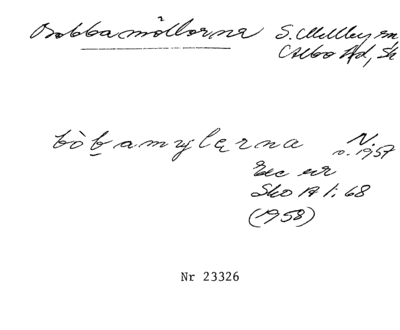 Bobbamöllorna S. Mellby sn
Albo hd, Sk
bòbamylęrna
1957
Exc ur
Sko A 1:68
(1958)
Nr 23326